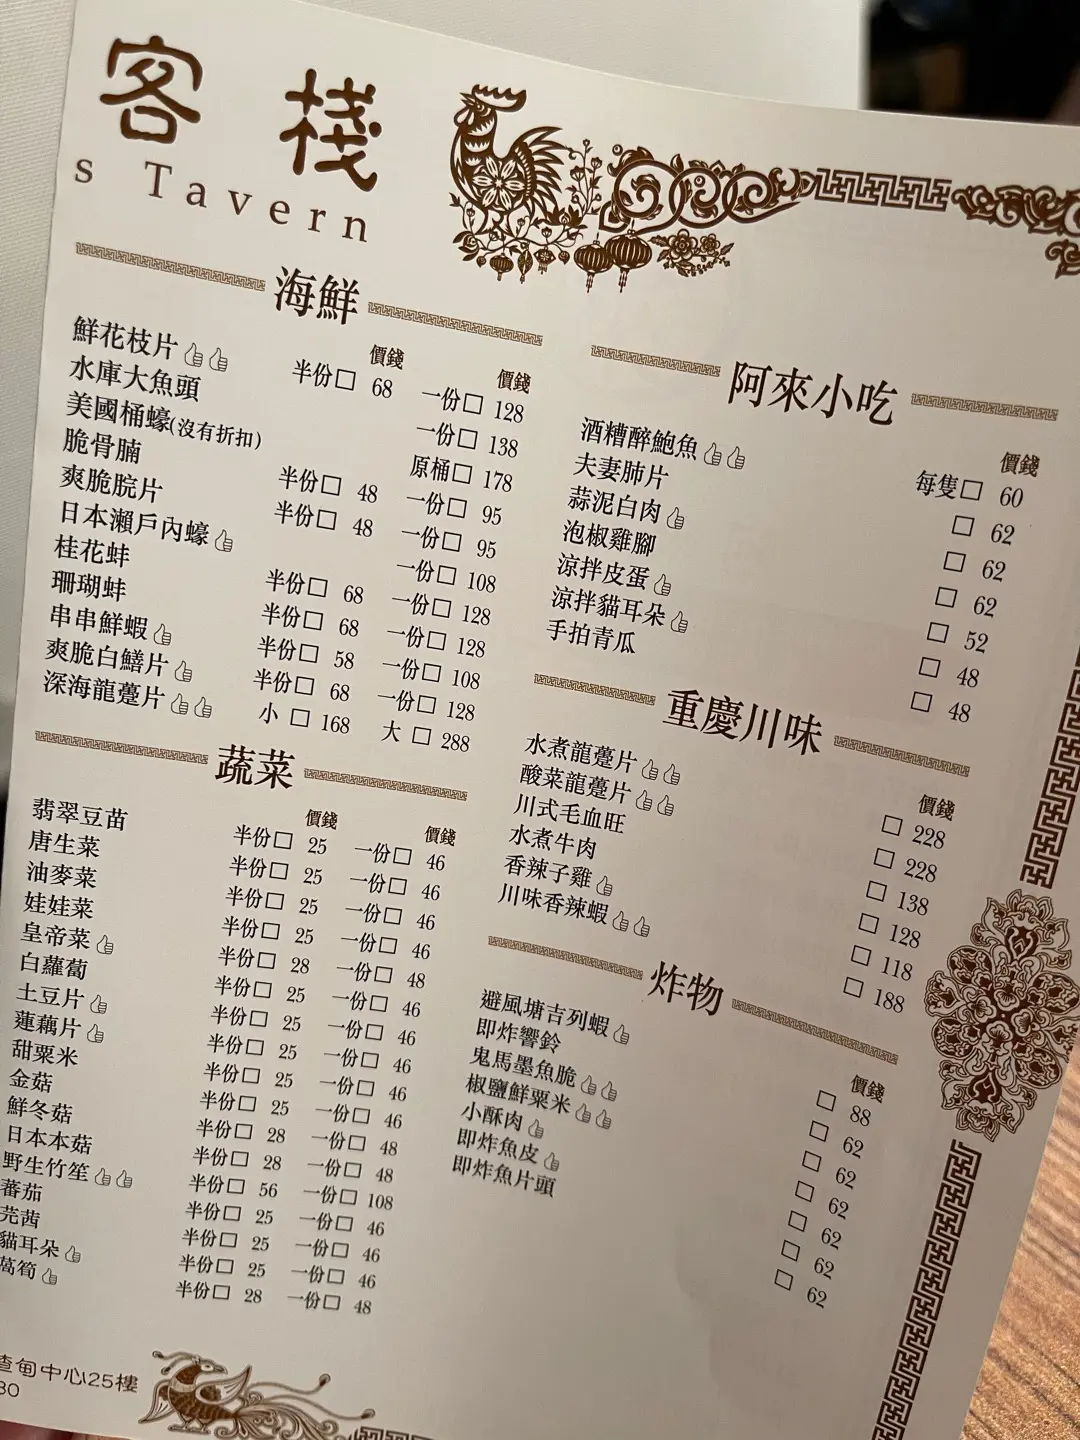 客棧
s Tavern
海鮮
價錢 價錢
鮮花枝片 半份□ 68 一份□ 128
水庫大魚頭 一份□ 138
美國桶蠔(沒有折扣) 原桶□ 178
脆骨腩 半份□ 48 一份□ 95
爽脆脘片 半份□ 48 一份□ 95
日本瀨戶內蠔 一份□ 108
桂花蚌 半份□ 68 一份□ 128
珊瑚蚌 半份□ 68 一份□ 128
串串鮮蝦 半份□ 58 一份□ 108
爽脆白鱔片 半份□ 68 一份□ 128
深海龍躉片 小 □ 168 大 □ 288
蔬菜
價錢 價錢
翡翠豆苗 半份□ 25 一份□ 46
唐生菜 半份□ 25 一份□ 46
油麥菜 半份□ 25 一份□ 46
娃娃菜 半份□ 25 一份□ 46
皇帝菜 半份□ 28 一份□ 48
白蘿蔔 半份□ 25 一份□ 46
土豆片 半份□ 25 一份□ 46
蓮藕片 半份□ 25 一份□ 46
甜粟米 半份□ 25 一份□ 46
金菇 半份□ 25 一份□ 46
鮮冬菇 半份□ 28 一份□ 48
日本本菇 半份□ 28 一份□ 48
野生竹笙 半份□ 56 一份□ 108
蕃茄 半份□ 25 一份□ 46
芫茜 半份□ 25 一份□ 46
貓耳朵 半份□ 25 一份□ 46
萵筍 半份□ 28 一份□ 48
查甸中心25樓
80
阿來小吃
價錢
酒糟醉鮑魚 每隻□ 60
夫妻肺片 □ 62
蒜泥白肉 □ 62
泡椒雞腳 □ 62
涼拌皮蛋 □ 52
涼拌貓耳朵 □ 48
手拍青瓜 □ 48
重慶川味
價錢
水煮龍躉片 □ 228
酸菜龍躉片 □ 228
川式毛血旺 □ 138
水煮牛肉 □ 128
香辣子雞 □ 118
川味香辣蝦 □ 188
炸物
價錢
避風塘吉列蝦 □ 88
即炸響鈴 □ 62
鬼馬墨魚脆 □ 62
椒鹽鮮粟米 □ 62
小酥肉 □ 62
即炸魚皮 □ 62
即炸魚片頭 □ 62